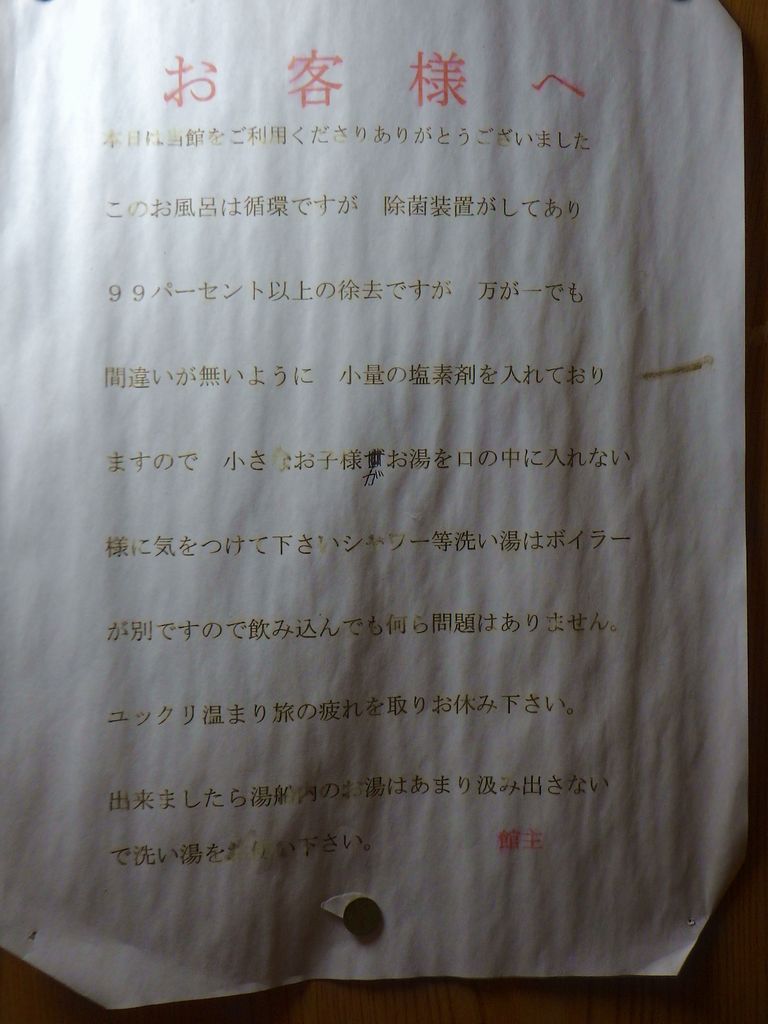 お客様へ
本日は当館をご利用くださりありがとうございました
このお風呂は循環ですが　除菌装置がしてあり
９９パーセント以上の徐去ですが　万が一でも
間違いが無いように　小量の塩素剤を入れており
ますので　小さなお子様がお湯を口の中に入れない
様に気をつけて下さいシャワー等洗い湯はボイラー
が別ですので飲み込んでも何ら問題はありません。
ユックリ温まり旅の疲れを取りお休み下さい。
出来ましたら湯船内のお湯はあまり汲み出さない
で洗い湯をお使い下さい。
館主